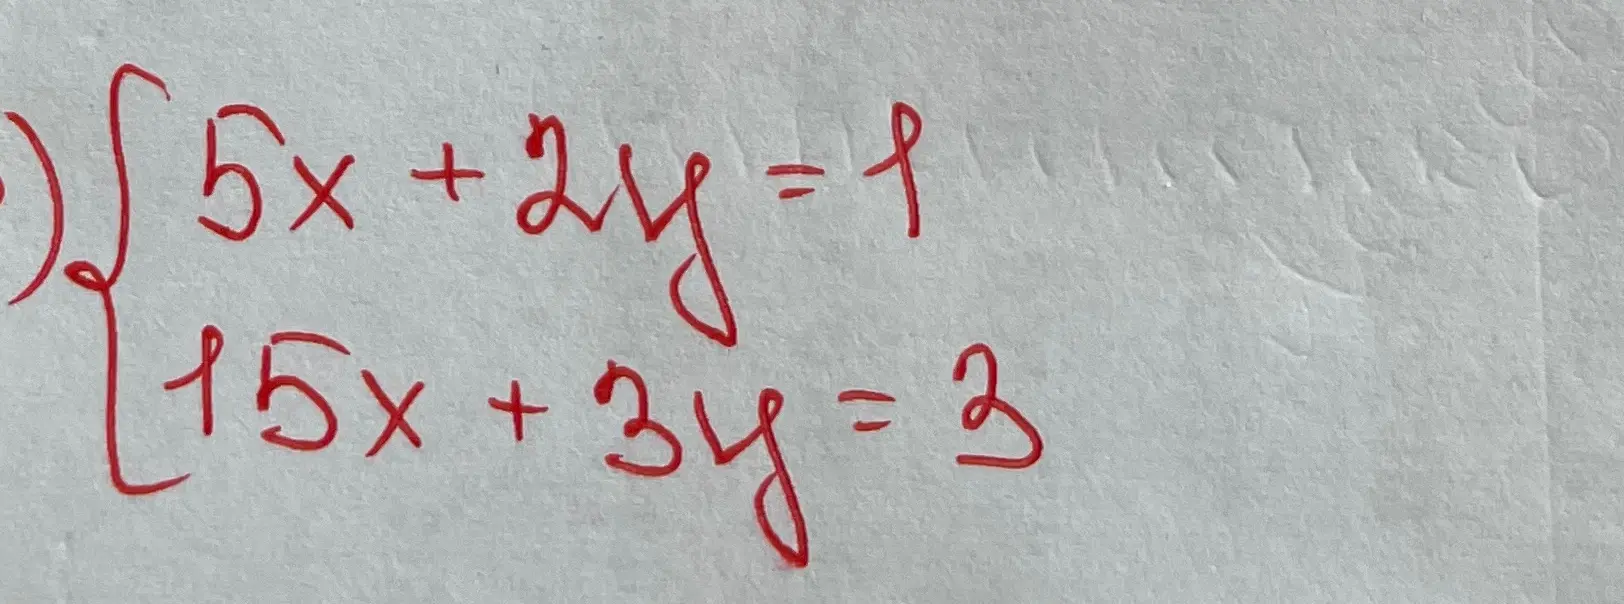 ) { 5x + 2y = 1
15x + 3y = 3